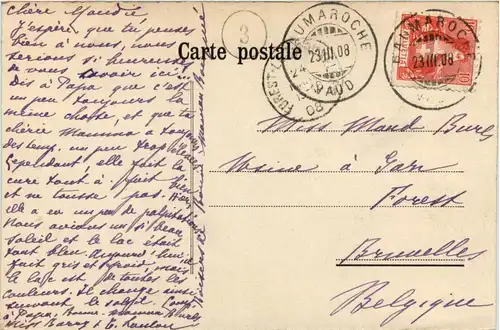 Chère Maudie
J'espère que tu penses
bien à nous, nous
serions si heureuses
de vous savoir ici.
Dis à Papa que c'est
un peu toujours la
même chose, et que ta
chérie Mamma a toujours
des temp. un peu trop
Cependant, elle fait la
cure tout à fait bien
et ne tousse pas. Hier,
elle a eu un peu de palpitations
Nous avions un si beau
soleil et le lac était
tout bleu. Aujourd'hui
fait gris et froid, mais
le lac est de toutes les
couleurs. Il change ainsi
suivant le
à Papa, Bonne-maman
Miss
3
Carte postale
BAUMAROCHE
23 III. 08
VAUD
FOREST
08
BAUMAROCHE
23 III. 08
10
Miss Maud Burls
Usine à Gaz
Forest
Bruxelles
Belgique